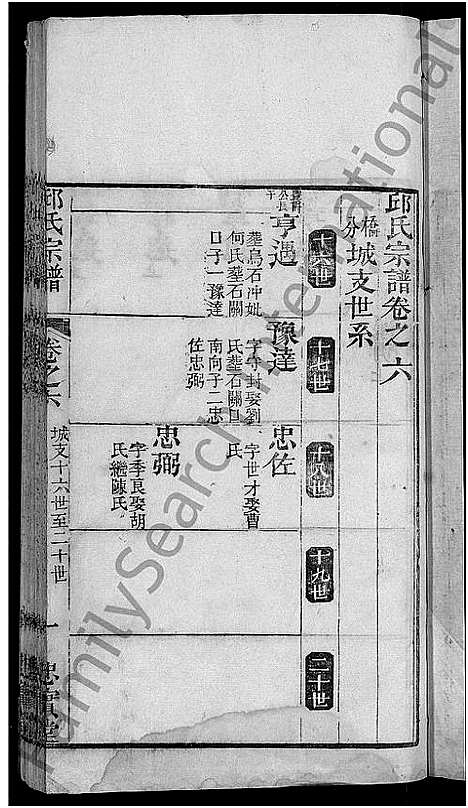 邱氏宗譜卷之六
橋分城支世系
十六世
十七世
十八世
十九世
二十世
亨遇
葬烏石沖妣
何氏葬石關
口子一豫達
豫達
字守封娶劉
氏葬石關口
南向子二忠
佐忠弼
忠佐
字世才娶曹
氏
忠弼
字季良娶胡
氏繼陳氏
邱氏宗譜
卷之六
城支十六世至二十世
一
FamilySearch International